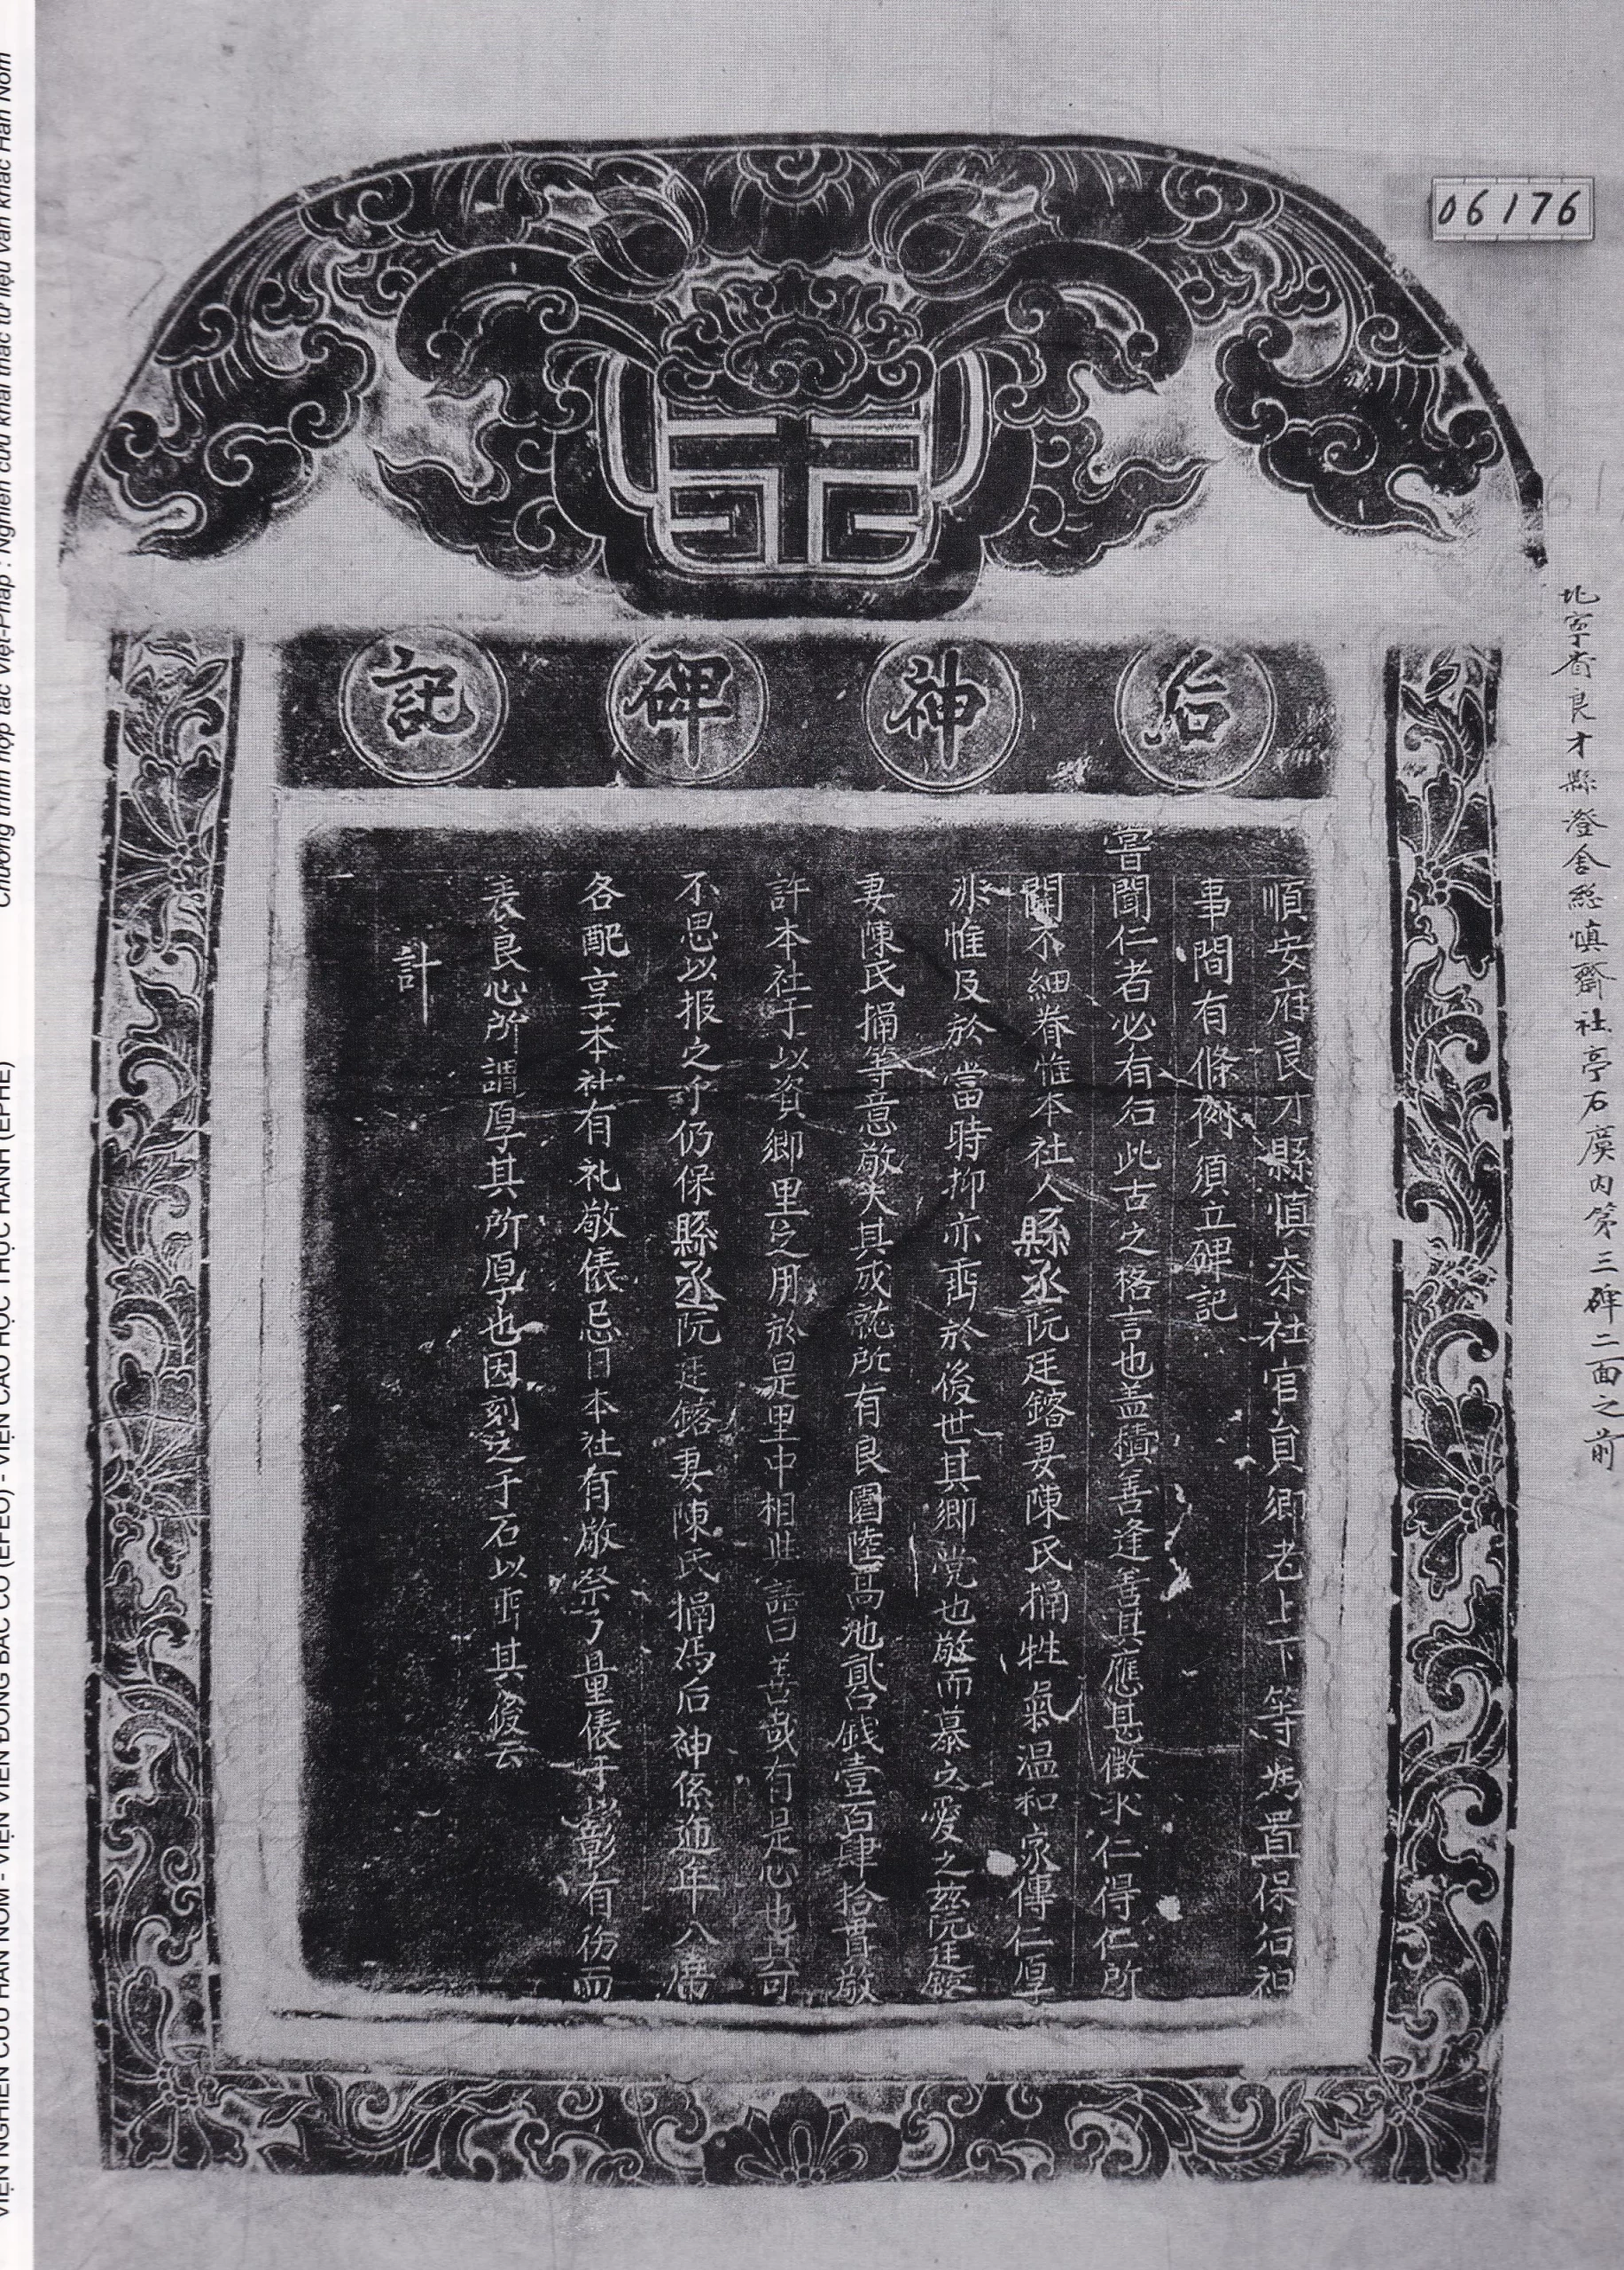 06176
后神碑記
順安府良才縣慎齋社官員鄉老上下等為置保后神
事間有條例須立碑記
嘗聞仁者必有后此古之格言也盖積善逢善其應甚徵求仁得仁所
關不細眷惟本社人縣丞阮廷鎔妻陳氏㨫牲氣温和家傳仁厚
非惟及於當時抑亦垂於後世其鄉党也敬而慕之愛之兹阮廷鎔
妻陳氏㨫等意敬大其成就所有良園陸高池貳口錢壹百肆拾貫敬
許本社于以資鄉里之用於是里中相與語曰善哉有是心也其可
不思以报之乎仍保縣丞阮廷鎔妻陳氏㨫為后神係逓年入席
各配享本社有礼敬俵忌日本社有敬祭亇具量俵于以彰有伤而
表良心所謂厚其所厚也因刻之于石以垂其後云
計
北寧省良才縣澄舍総慎齋社亭石廣内第三碑二面之前
Chương trình hợp tác Việt-Pháp : Nghiên cứu khai thác tư liệu văn khắc Hán Nôm
VIỆN NGHIÊN CỨU HÁN NÔM - VIỆN VIỄN ĐÔNG BÁC CỔ (EFEO) - VIỆN CAO HỌC THỰC HÀNH (EPHE)